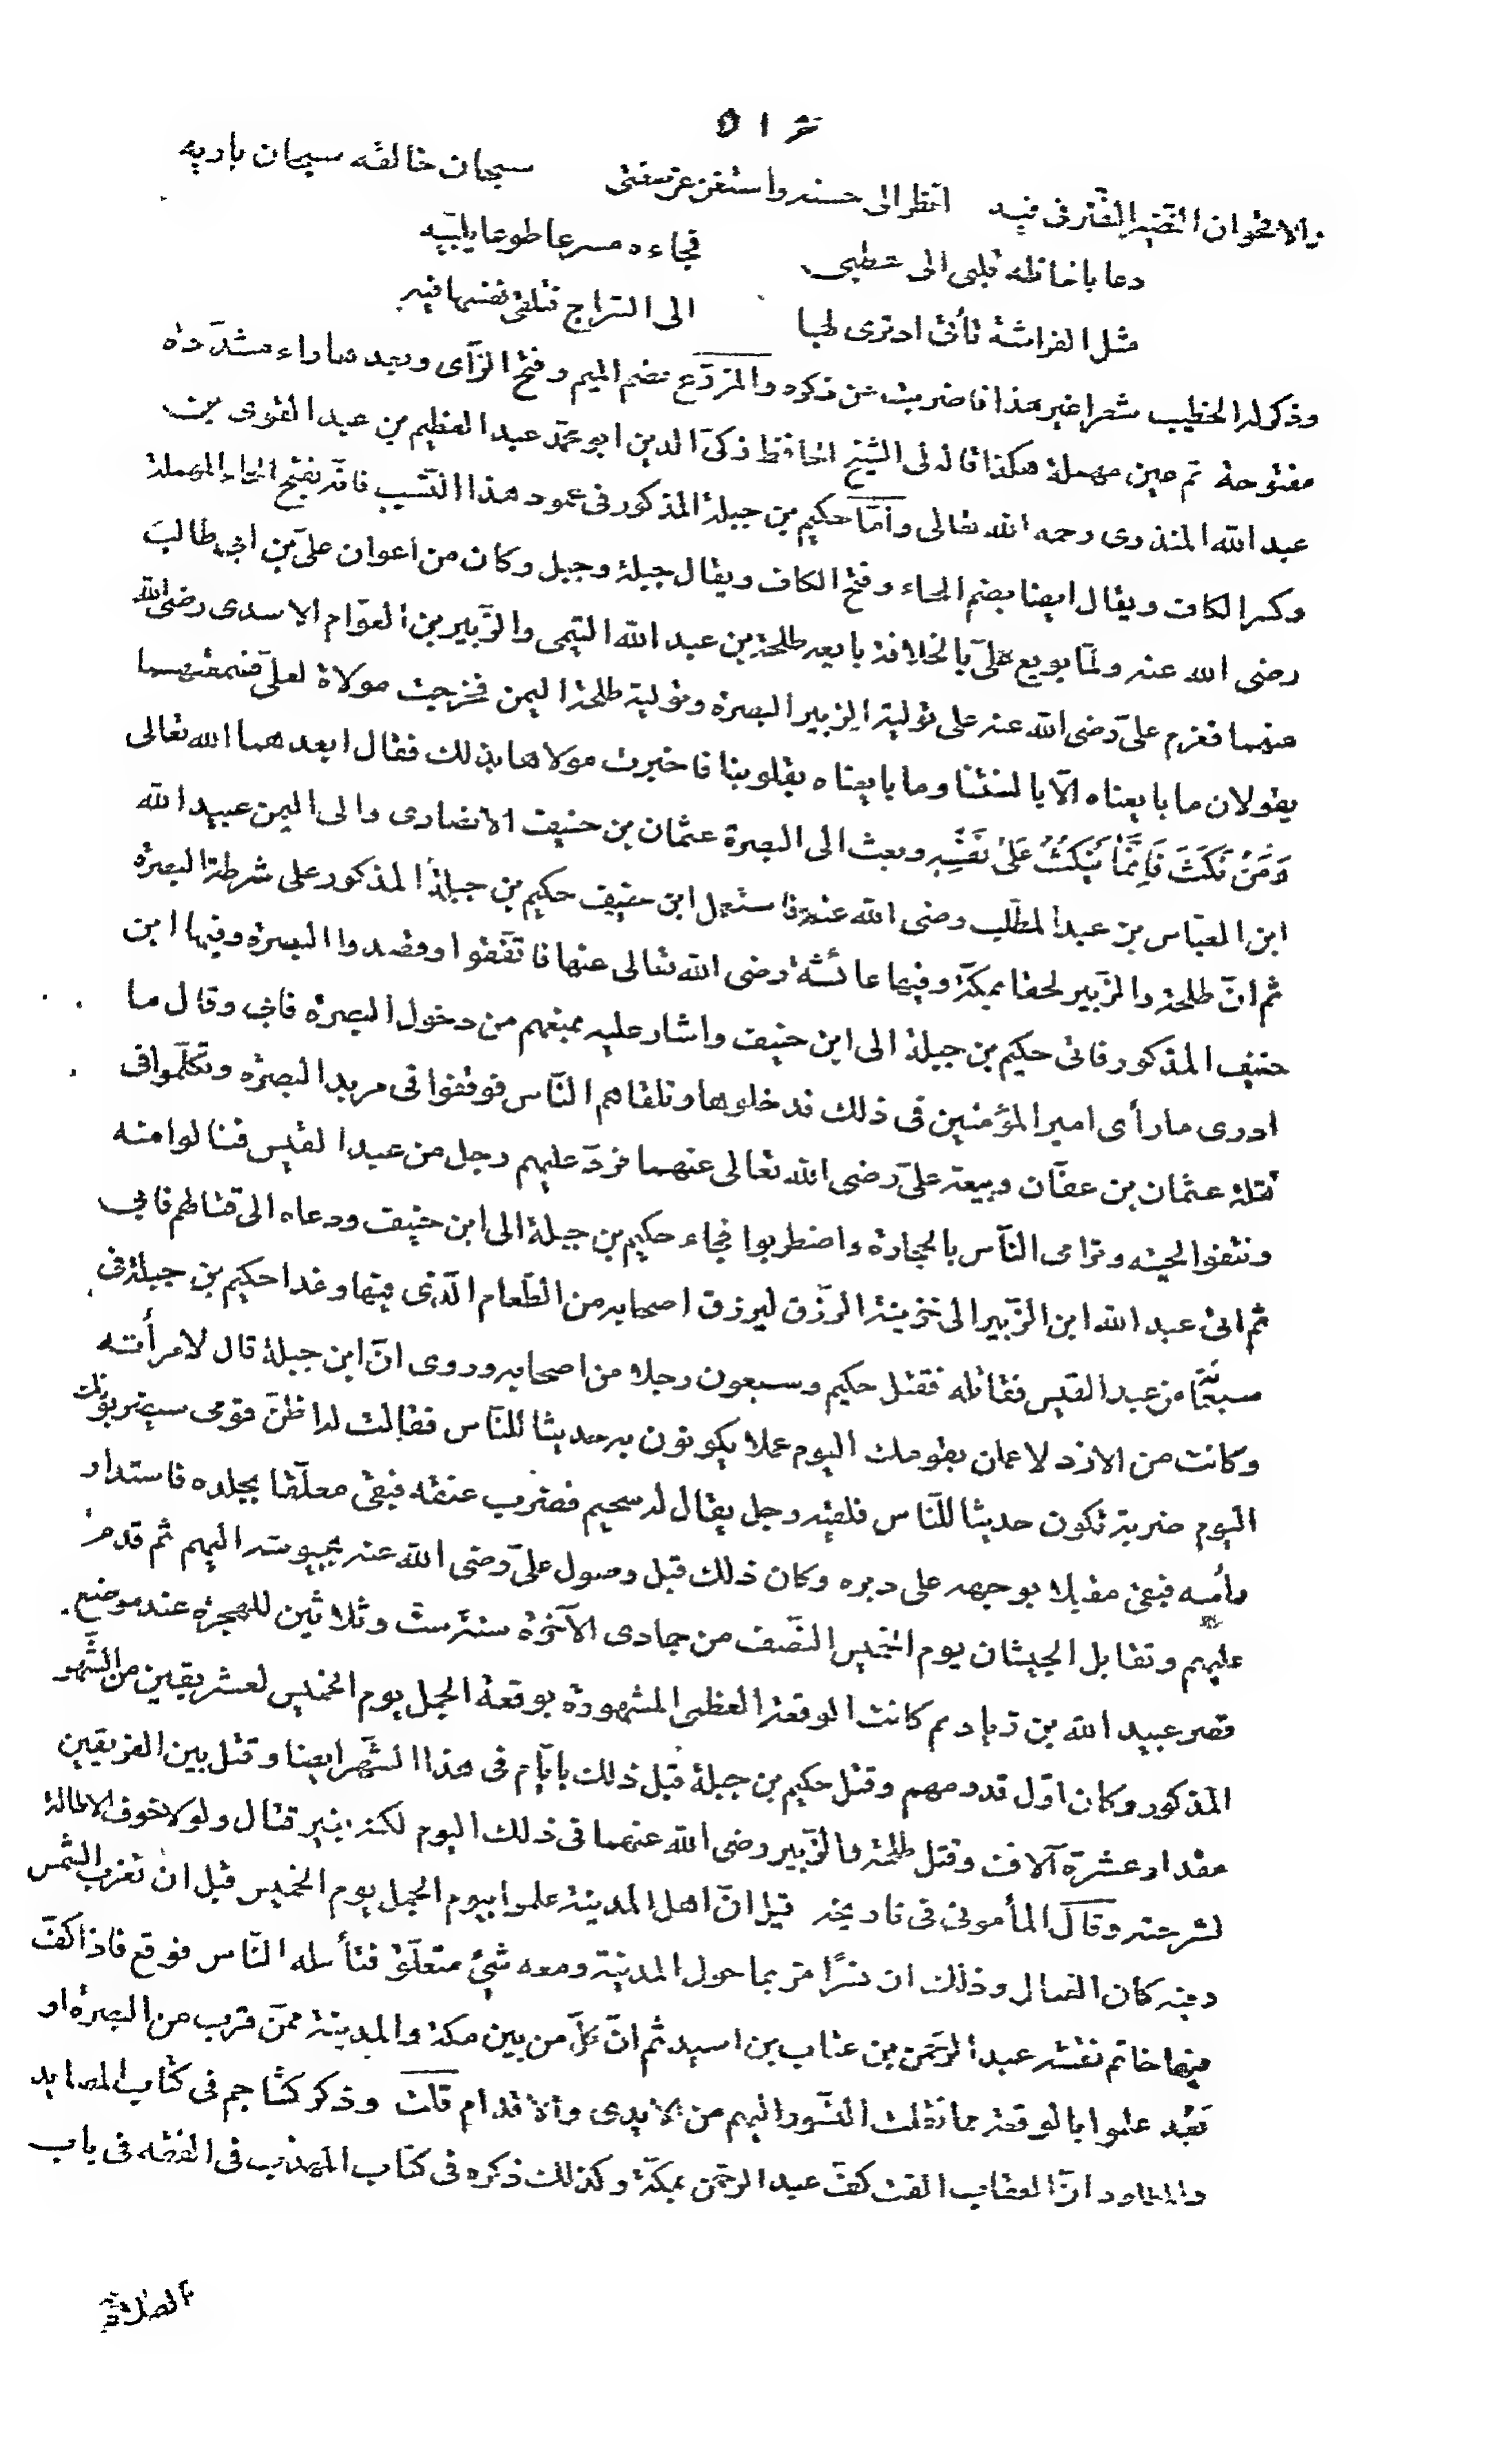 والاقحوان النضير الغض في فيه انظر الى حسنه واستغن عن صفتى سبحان خالقه سبحان باريه
دعا بالحاظه قلبى الى عطبى فجاءه مسرعا طوعا يلبيه
مثل الفراشة تأتى اذ ترى لهبا الى السراج فتلقى نفسها فيه
وذكر له الخطيب شعرا غير هذا فاضربت عن ذكره والمزرّع بضم الميم وفتح الزّاى وبعدها راء مشدّدة
مفتوحة ثم عين مهملة هكذا قاله لى الشيخ الحافظ ذكىّ الدين ابو محمّد عبد العظيم بن عبد القوى بن
عبد الله المنذرى رحمه الله تعالى وأمّا حكيم بن جبلة المذكور فى عمود هذا النّسب فانّه بفتح الحاء المهملة
وكسر الكاف ويقال ايضا بضم الحاء وفتح الكاف ويقال جبلة وجبل وكان من اعوان علىّ بن ابى طالب
رضى الله عنه ولمّا بويع علىّ بالخلافة بايعه طلحة بن عبد الله التيمى والزّبير بن العوّام الاسدى رضى الله
عنهما فعزم علىّ رضى الله عنه على تولية الزبير البصرة وتولية طلحة اليمن فخرجت مولاة لعلىّ فسمعتهما
يقولان ما بايعناه الّا بالسنتنا وما بايعناه بقلوبنا فاخبرت مولاها بذلك فقال ابعدهما الله تعالى
وَمَنْ نَكَثَ فَاِنَّمَا يَنْكُثُ عَلَىٰ نَفْسِهِ وبعث الى البصرة عثمان بن حنيف الانصارى والى اليمن عبيد الله
ابن العبّاس بن عبد المطّلب رضى الله عنهم فاستعمل ابن حنيف حكيم بن جبلة المذكور على شرطة البصرة
ثم انّ طلحة والزّبير لحقا بمكّة وفيها عائشة رضى الله تعالى عنها فاتّفقوا وقصدوا البصرة وفيها ابن
حنيف المذكور فاتى حكيم بن جبلة الى ابن حنيف واشار عليه بمنعهم من دخول البصرة فابى وقال ما
ادرى ما رأى امير المؤمنين فى ذلك فدخلوها وتلقاهم النّاس فوقفوا فى مربد البصرة وتكلّموا فى
قتلة عثمان بن عفّان وبيعة علىّ رضى الله تعالى عنهما فردّ عليهم رجل من عبد القيس فنالوا منه
ونتفوا لحيته وترامى النّاس بالحجارة واضطربوا فجاء حكيم بن جبلة الى ابن حنيف ودعاه الى قتالهم فابى
ثم اتى عبد الله ابن الزّبير الى خزينة الرّزق ليرزق اصحابه من الطّعام الّذى فيها وغدا حكيم بن جبلة فى
سبعمائة من عبد القيس فقاتله فقتل حكيم وسبعون رجلا من اصحابه وروى انّ ابن جبلة قال لامرأته
وكانت من الازد لاعملن بقومك اليوم عملا يكونون به حديثا للنّاس فقالت له اظنّ قومى سيضربونك
اليوم ضربة تكون حديثا للنّاس فلقيه رجل يقال له سحيم فضرب عنقه فبقى معلّقا بجلده فاستدار
رأسه فبقى مقبلا بوجهه على دبره وكان ذلك قبل وصول علىّ رضى الله عنه بجيوشه اليهم ثم قدم
عليهم وتقابل الجيشان يوم الخميس النّصف من جمادى الآخرة سنة ستّ وثلاثين للهجرة عند موضع
قصر عبيد الله بن زياد ثم كانت الوقعة العظمى المشهورة بوقعة الجمل يوم الخميس لعشر بقين من الشّهر
المذكور وكان اوّل قدومهم وقتل حكيم بن جبلة قبل ذلك بايّام فى هذا الشّهر ايضا وقتل بين الفريقين
مقدار عشرة آلاف وقتل طلحة والزّبير رضى الله عنهما فى ذلك اليوم لكنه بغير قتال ولولا خوف الاطالة
لشرحته وقال المأمونى فى تاريخه قيل انّ اهل المدينة علموا بيوم الجمل يوم الخميس قبل ان تغرب الشّمس
وفيه كان القتال وذلك ان نسرًا مرّ بما حول المدينة ومعه شئ متعلّق فتأمله النّاس فوقع فاذا كفّ
فيها خاتم نقشه عبد الرّحمن بن عتاب بن اسيد ثم انّ كلّ من بين مكة والمدينة ممّن قرب من البصرة او
بَعُد علموا بالوقعة مما نقلت النّسور اليهم من الايدى والاقدام قلت وذكر كشاجم فى كتاب المصايد
والمطارد انّ العقاب القت كفّ عبد الرحمن بمكّة وكذلك ذكره فى كتاب المهذّب فى الفقه فى باب
الصّلاة